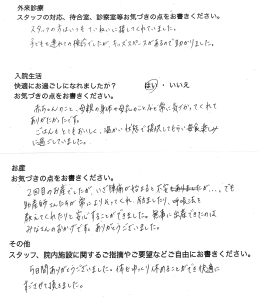 外来診療
スタッフの対応、待合室、診察室等お気づきの点をお書きください。
スタッフの方はいつもていねいに接してくれていました。
子ども連れでの検診でしたが、キッズスペースがあるので助かりました。
入院生活
快適にお過ごしになれましたか？ はい ・ いいえ
お気づきの点をお書きください。
赤ちゃんのこと、母親の身体や母乳のことなど常に気づかってくれて
ありがたかったです。
ごはんもとてもおいしく、温かい状態で提供してもらい毎食楽しみ
に過ごしていました。
お産
お気づきの点をお書きください。
2回目のお産でしたが、いざ陣痛が始まると不安もありましたが…、でも
助産師さんたちが常により添ってくれ、励ましたり、呼吸法を
教えてくれたりと安心することができました。無事に出産できたのは
みなさんのおかげです。ありがとうございました。
その他
スタッフ、院内施設に関するご指摘やご要望などご自由にお書きください。
5日間ありがとうございました。体も ゆっくり休めることができ快適に
すごさせて頂きました。